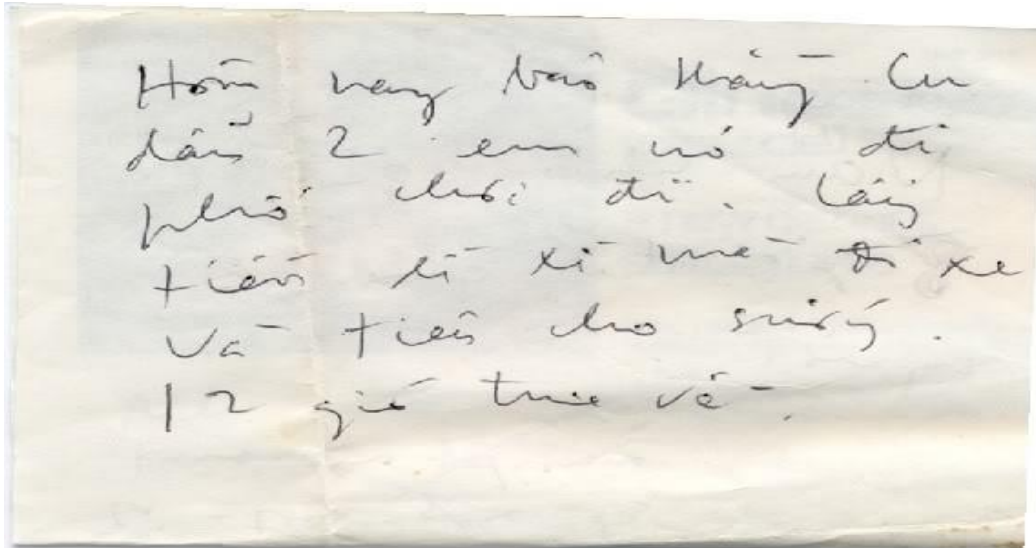 Hôm nay bảo thằng Cu
dẫn 2 em nó đi
phố chơi đi. Lấy
tiền lì xì mà đi xe
và tiền cho sướng.
12 giờ trưa về.